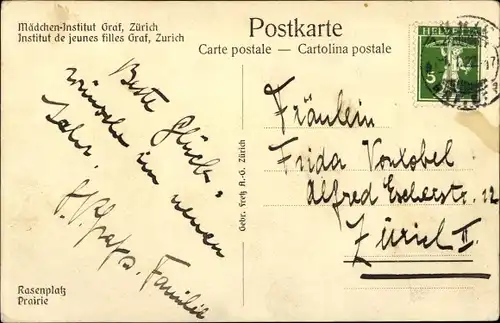 Mädchen-Institut Graf, Zürich
Institut de jeunes filles Graf, Zurich
Postkarte
Carte postale — Cartolina postale
HELVETIA
5
Beste Glück-
wünsche im neuen
Jahr.
Familie
Gebr. Fretz A.-G. Zürich
Fräulein
Frida Vonlobel
Alfred Escherstr. 12
Zürich II.
Rasenplatz
Prairie